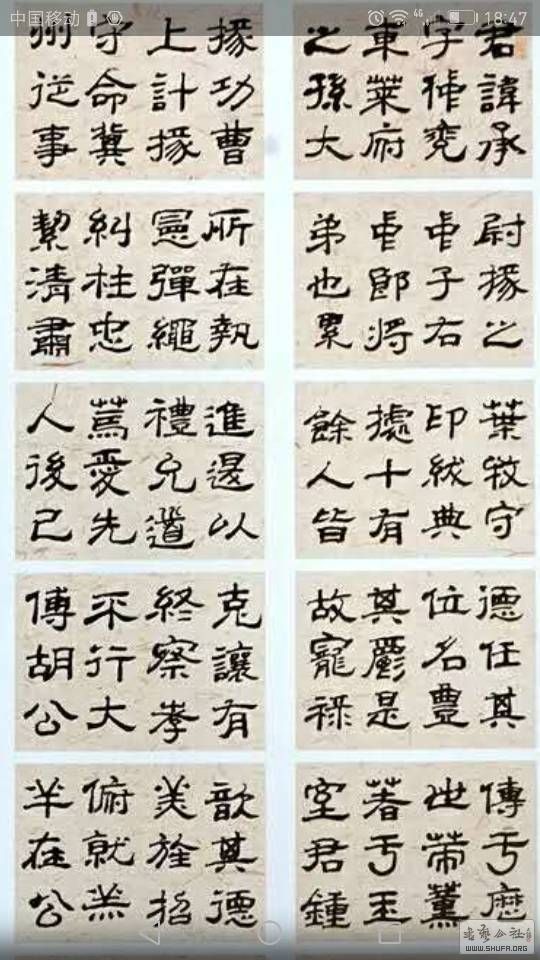 中国移动 4G 18:47
君諱承
字仲兗
東萊府
之孫大
尉掾之
中子右
中郎將
弟也累
葉牧守
印紱典
據十有
餘人皆
德任其
位名豊
其爵是
故寵祿
傳于歷
世帶薰
著于王
室君鍾
掾功曹
上計掾
守命冀
州從事
所在執
憲彈繩
糾枉忠
絜清肅
進退以
禮允道
篤愛先
人後己
克讓有
終察孝
不行大
傅胡公
歆其德
美旌招
俯就羔
羊在公
书艺公社
WWW.SHUFA.ORG